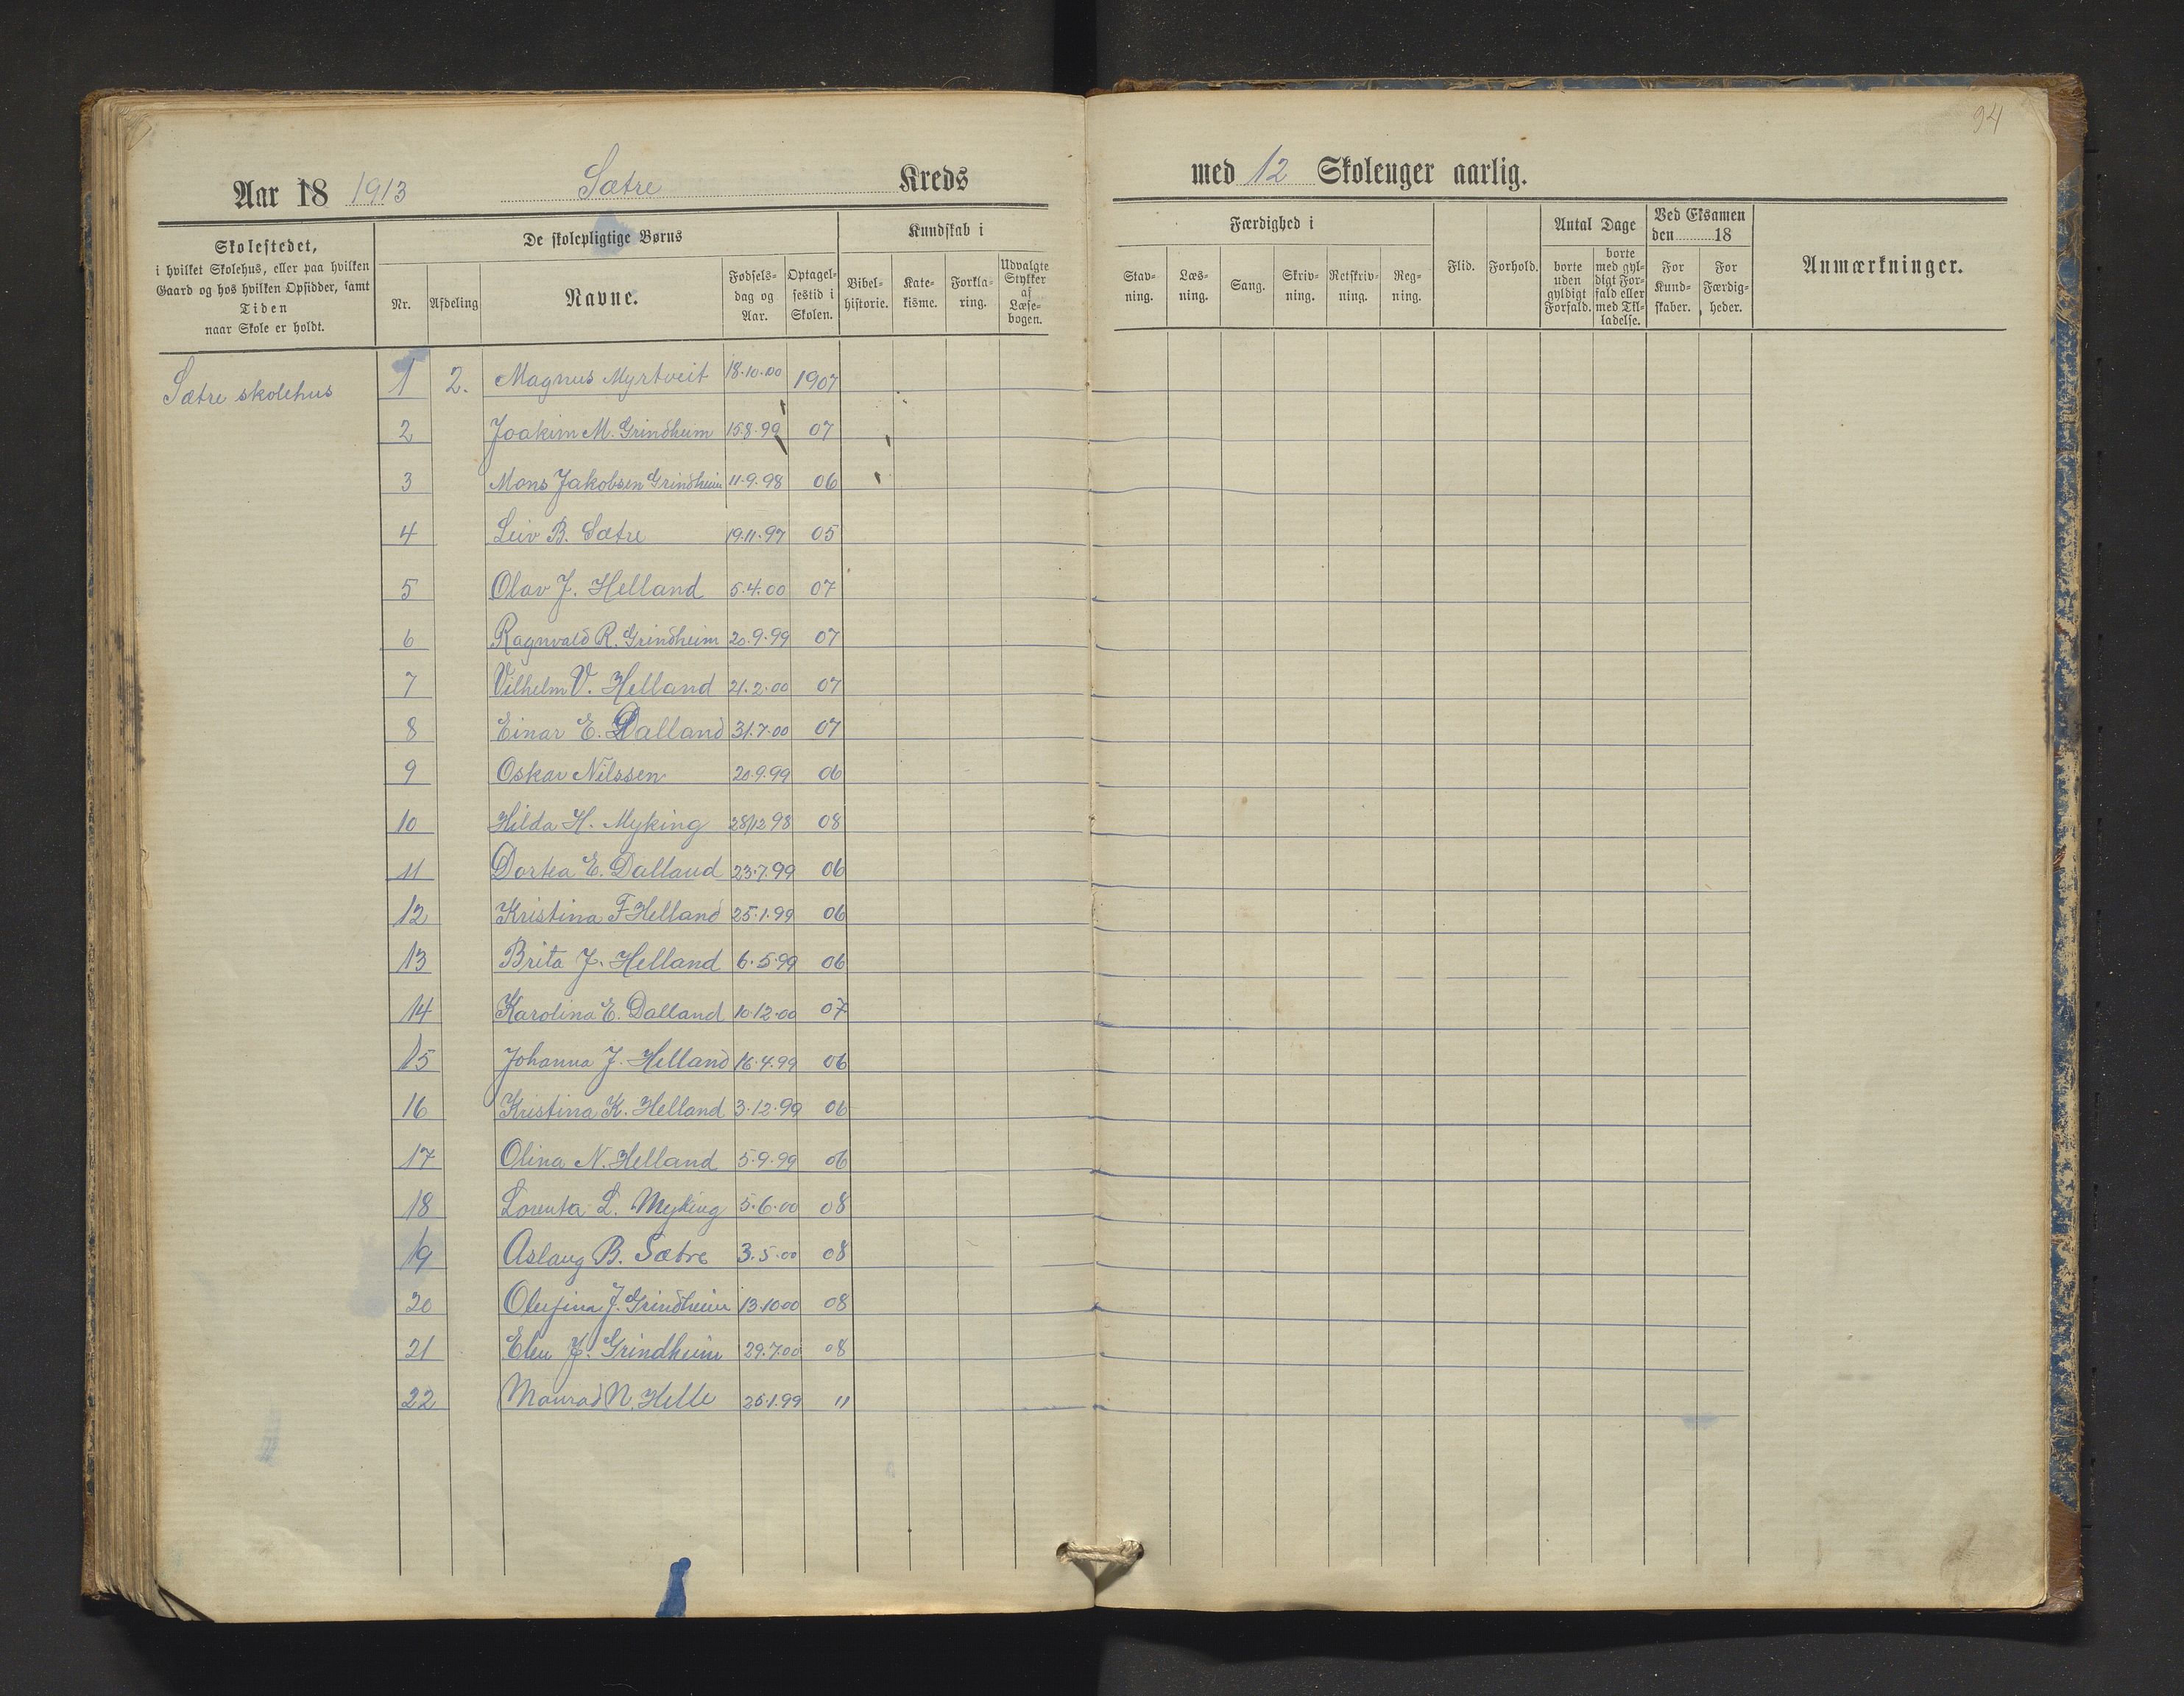 94
Aar 18 1913 Sætre Kreds med 12 Skoleuger aarlig.
Skolestedet,
i hvilket Skolehus, eller paa hvilken
Gaard og hos hvilken Opsidder, samt
Tiden
naar Skole er holdt.
De skolepligtige Børns
Nr.
Afdeling
Navne.
Fødsels-
dag og
Aar.
Optagel-
sestid i
Skolen.
Kundskab i
Bibel-
historie.
Kate-
kisme.
Forkla-
ring.
Udvalgte
Stykker
af
Læse-
bogen.
Færdighed i
Stav-
ning.
Læs-
ning.
Sang.
Skriv-
ning.
Retskriv-
ning.
Reg-
ning.
Flid.
Forhold.
Antal Dage
borte
uden
gyldigt
Forfald.
borte
med gyl-
digt For-
fald eller
med Til-
ladelse.
Ved Eksamen
den 18
For
Kund-
skaber.
For
Færdig-
heder.
Anmærkninger.
Sætre skolehus
1 2. Magnus Myrtveit 18.10.00 1907
2 Joakim M. Grindheim 15.8.99 07
3 Mons Jakobsen Grindheim 11.9.98 06
4 Leiv B. Sætre 19.11.97 05
5 Olav J. Helland 5.4.00 07
6 Ragnvald R. Grindheim 20.9.99 07
7 Vilhelm V. Helland 21.2.00 07
8 Einar E. Dalland 31.7.00 07
9 Oskar Nilssen 20.9.99 06
10 Hilda H. Myking 28/12 98 08
11 Dortea E. Dalland 23.7.99 06
12 Kristina F Helland 25.1.99 06
13 Brita J. Helland 6.5.99 06
14 Karolina E. Dalland 10.12.00 07
15 Johanna J. Helland 16.4.99 06
16 Kristina K. Helland 3.12.99 06
17 Olina N. Helland 5.9.99 06
18 Lorenta L. Myking 5.6.00 08
19 Aslaug B. Sætre 3.5.00 08
20 Olufina J. Grindheim 13.10.00 08
21 Elen J. Grindheim 29.7.00 08
22 N. Helle 25.1.99 11